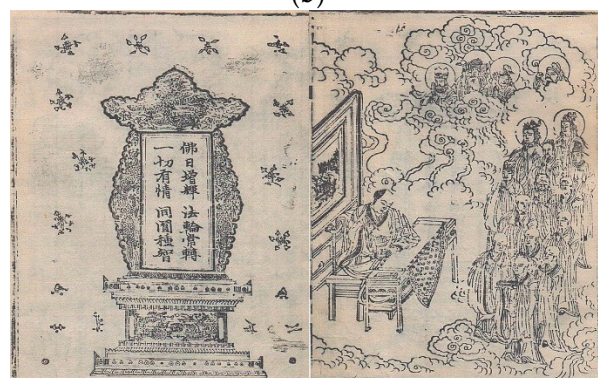 (b)
佛日增輝 法輪常轉
一切有情 同圓種智